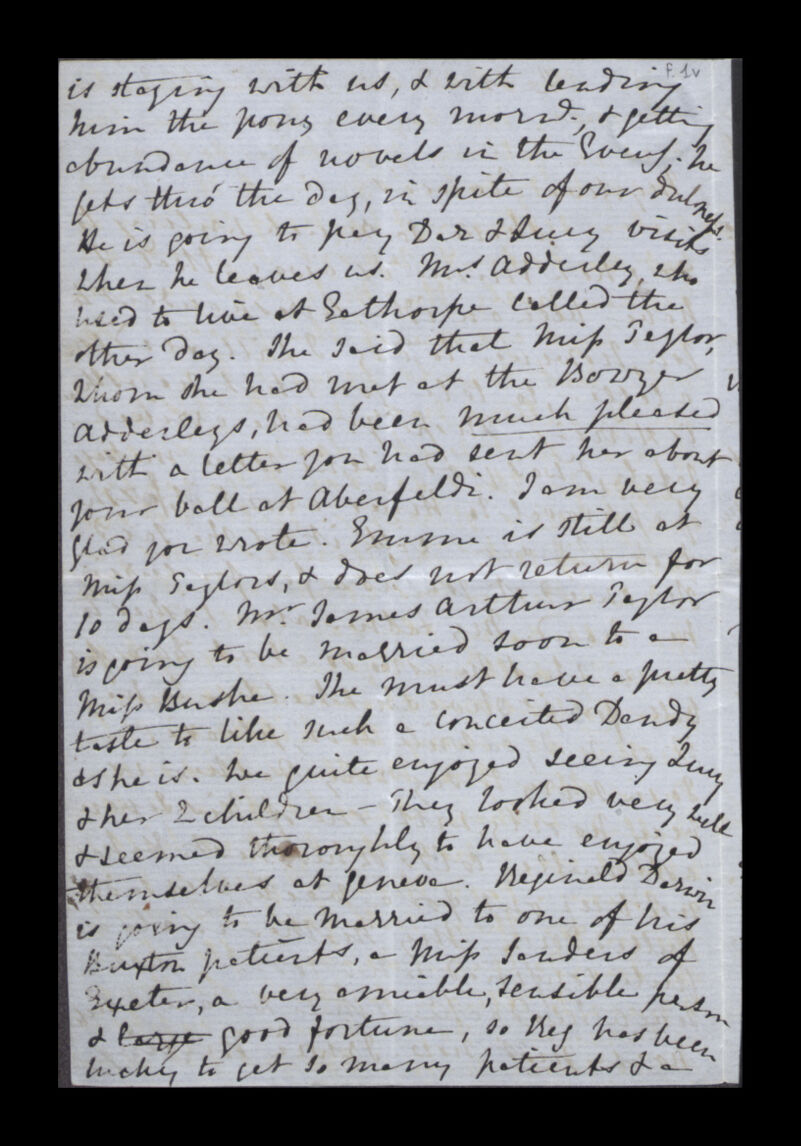 f. 1v
is staying with us, & with lending
him the pony every mornḍ, & getting
abundance of novels in the Eveng. he
gets thro' the day, in spite of our dulness.
He is going to pay Dar & Lucy visits
when he leaves us. Mrs Adderley, who
used to live at Eathorpe called the
other day. She said that Miss Taylor,
whom she had met at the Bowyer
Adderleys, had been much pleased
with a letter you had sent her about
your ball at Aberfeldi. I am very
glad you wrote. Emme is still at
Miss Taylors, & does not return for
10 days. Mr. James Arthur Taylor
is going to be married soon to a
Miss Bushe. She must have a pretty
taste to like such a conceited Dandy
as he is. We quite enjoyed seeing Lucy
& her 2 children – They looked very well
& seemed thoroughly to have enjoyed
themselves at Geneva. Reginald Darwin
is going to be married to one of his
Buxton patients, a Miss Sanders of
Exeter, a very amiable, sensible person
& large good fortune, so Reg has been
lucky to get so many patients & a